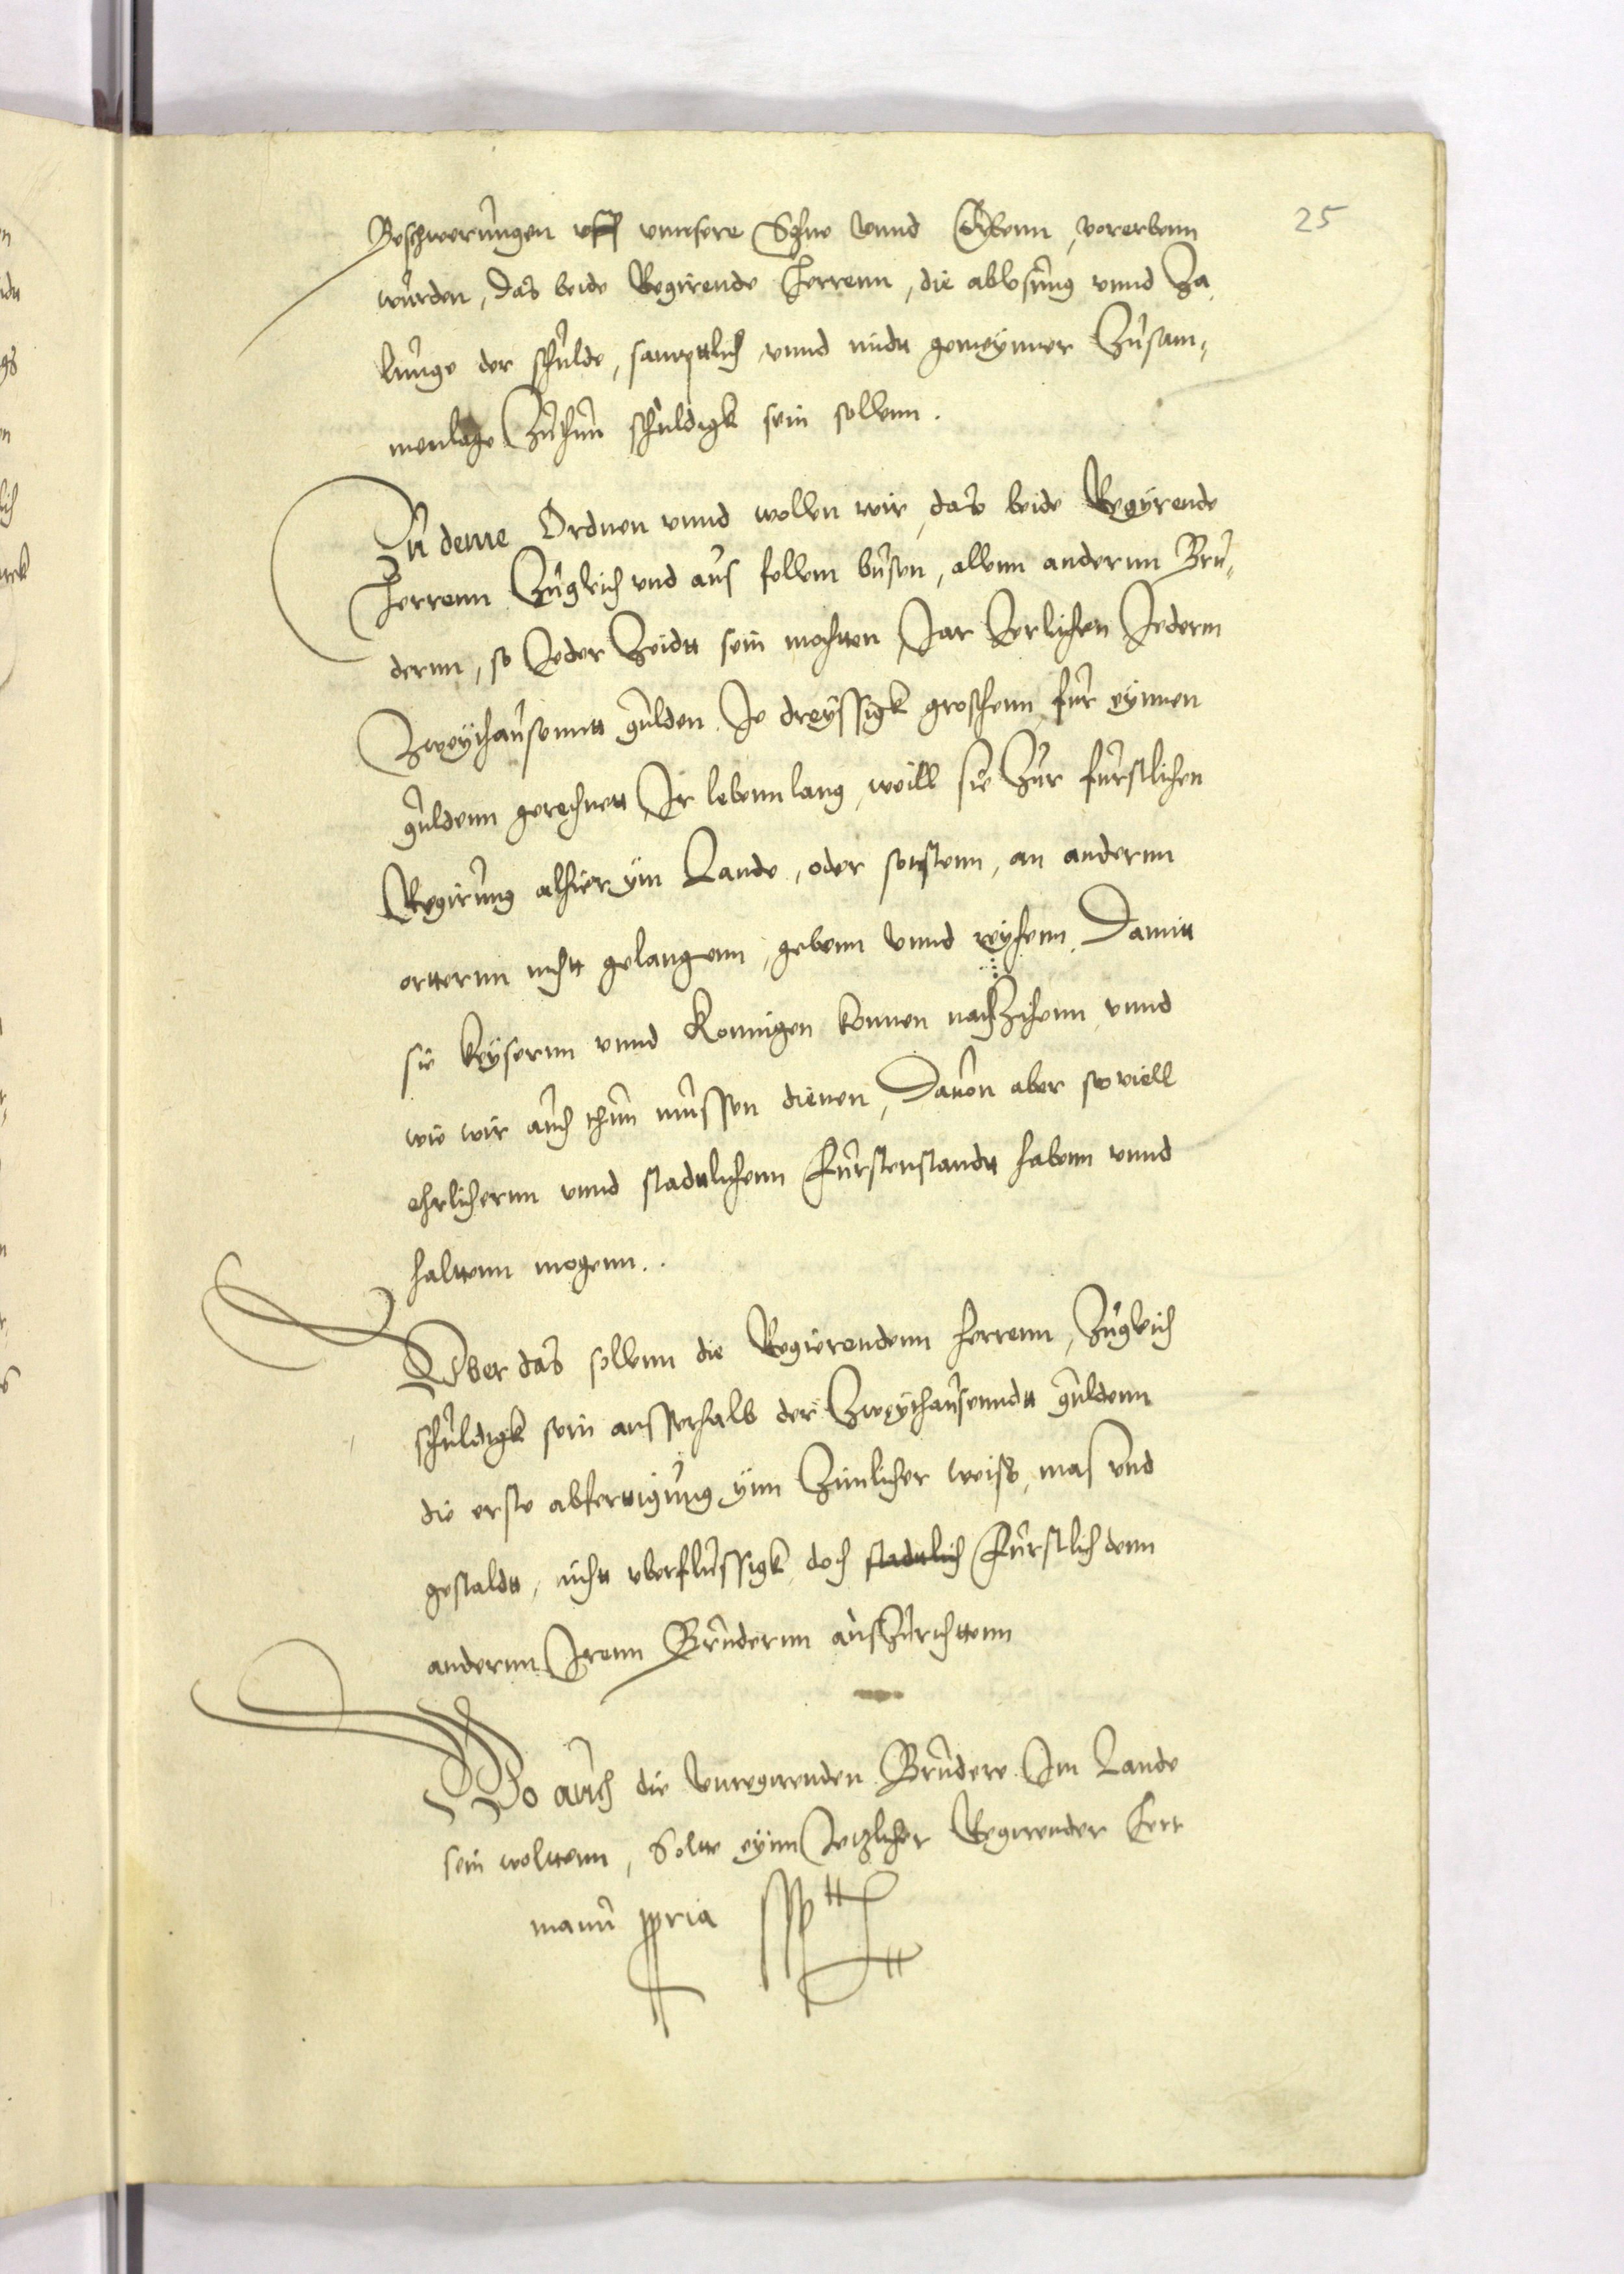 25
Beschwerungen unnsere Sohne Vnnd Erbenn, vererbenn
wurden, Das beide Regirende Herrenn, die ablosung vnnd Za,
lunge der schulde, sampttlich vnnd midtt gemeynner Zusam-
menlage Zuthun schuldigk sein sollenn.
Zu deme Ordnen vnnd wollen wir, das beide Regyrende
Herrenn Zugleich vnd aus follem busen, allenn andernn Bru-
dernn, so Jeder Zeidtt sein mochtten Jar Jerlichen Jederm
Zweythausenntt gulden Je dreyssigk groschenn fur eynnen
guldenn gerechnett Ir lebennlang, weill sie Zur furstlichen
Regirung alhier ym Lande, oder sonstenn, an andernn
ortternn nicht gelangenn, gebenn Vnnd reychenn, Damitt
sie keysernn vnnd Konnigen konnen nachZihenn vnnd
wie wir auch thun mussen dienen, Dauon aber so viell
ehrlichernn vnnd stadtlichenn Furstenstandtt habenn vnnd
halttenn mogenn..
Vber das sollenn die Regierendenn herrenn, Zugleich
schuldigk sein ausserhalb der Zweythausenndtt guldenn
die erste abferttigung ynn Zimlicher weise, mas vnd
gestaldtt, nicht vberflussigk, doch stadtlich Furstlich denn
andernn Irenn Brudernn ausZurichttenn
Wo auch die Vnregirenden Brudere Im Lande
sein wolttenn, Soltte eynn Jetzlicher Regirender Herr
manu ppria sspt